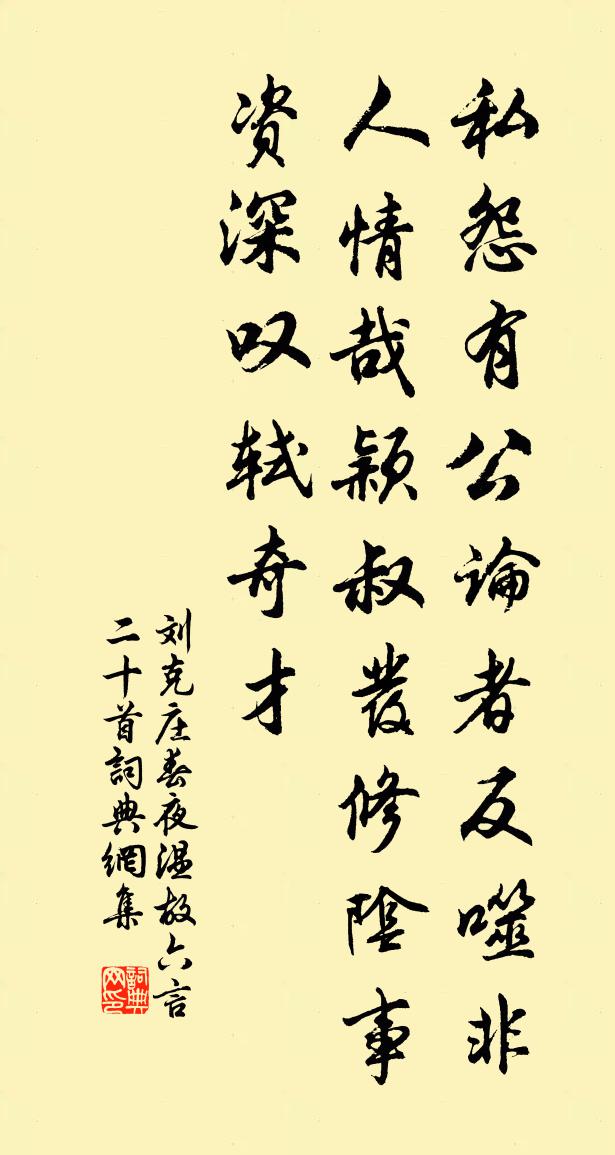 私怨有公論者反噬非
人情哉颖叔發修陰事
资深叹轼奇才
刘克庄春夜温故六言
二十首詞典網集
詞典网印